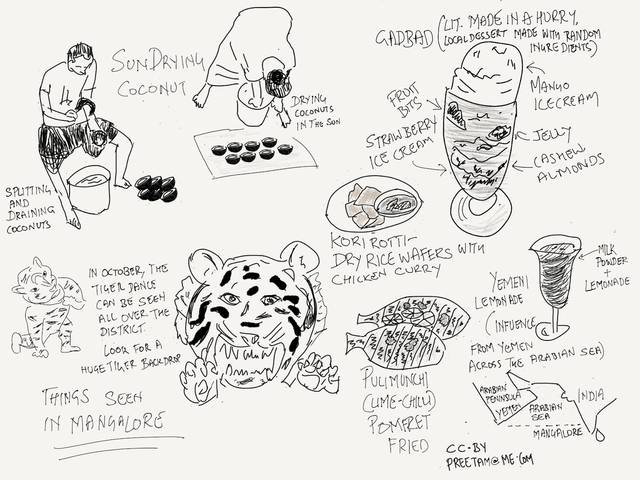 SUN DRYING
COCONUT
DRYING
COCONUTS
IN THE SUN
SPLITTING
AND
DRAINING
COCONUTS
GADBAD (LIT. MADE IN A HURRY,
LOCAL DESSERT MADE WITH RANDOM
INGREDIENTS)
MANGO
ICECREAM
FRUIT
BITS
STRAWBERRY
ICE CREAM
JELLY
CASHEW
ALMONDS
KORI ROTTI-
DRY RICE WAFERS WITH
CHICKEN CURRY
IN OCTOBER, THE
TIGER DANCE
CAN BE SEEN
ALL OVER THE
DISTRICT.
LOOK FOR A
HUGE TIGER BACKDROP
YEMENI
LEMONADE
(INFLUENCE
FROM YEMEN
ACROSS THE ARABIAN SEA)
MILK
POWDER
+
LEMONADE
PULIMUNCHI
(LIME-CHILLI)
POMFRET
FRIED
ARABIAN
PENINSULA
YEMEN
ARABIAN
SEA
INDIA
MANGALORE
THINGS SEEN
IN MANGALORE
CC-BY
PREETAM@ME.COM